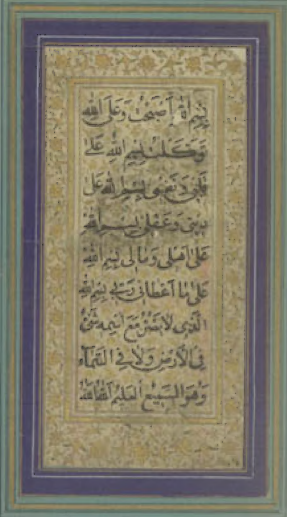 بسم الله اصبحت وعلى الله
توكلت بسم الله على
قلبي ونفسي بسم الله على
ديني وعقلي بسم الله
على اهلي ومالي بسم الله
على ما اعطاني ربي بسم الله
الذي لا يضر مع اسمه شئ
في الأرض ولا في السماء
وهو السميع العليم الله الله